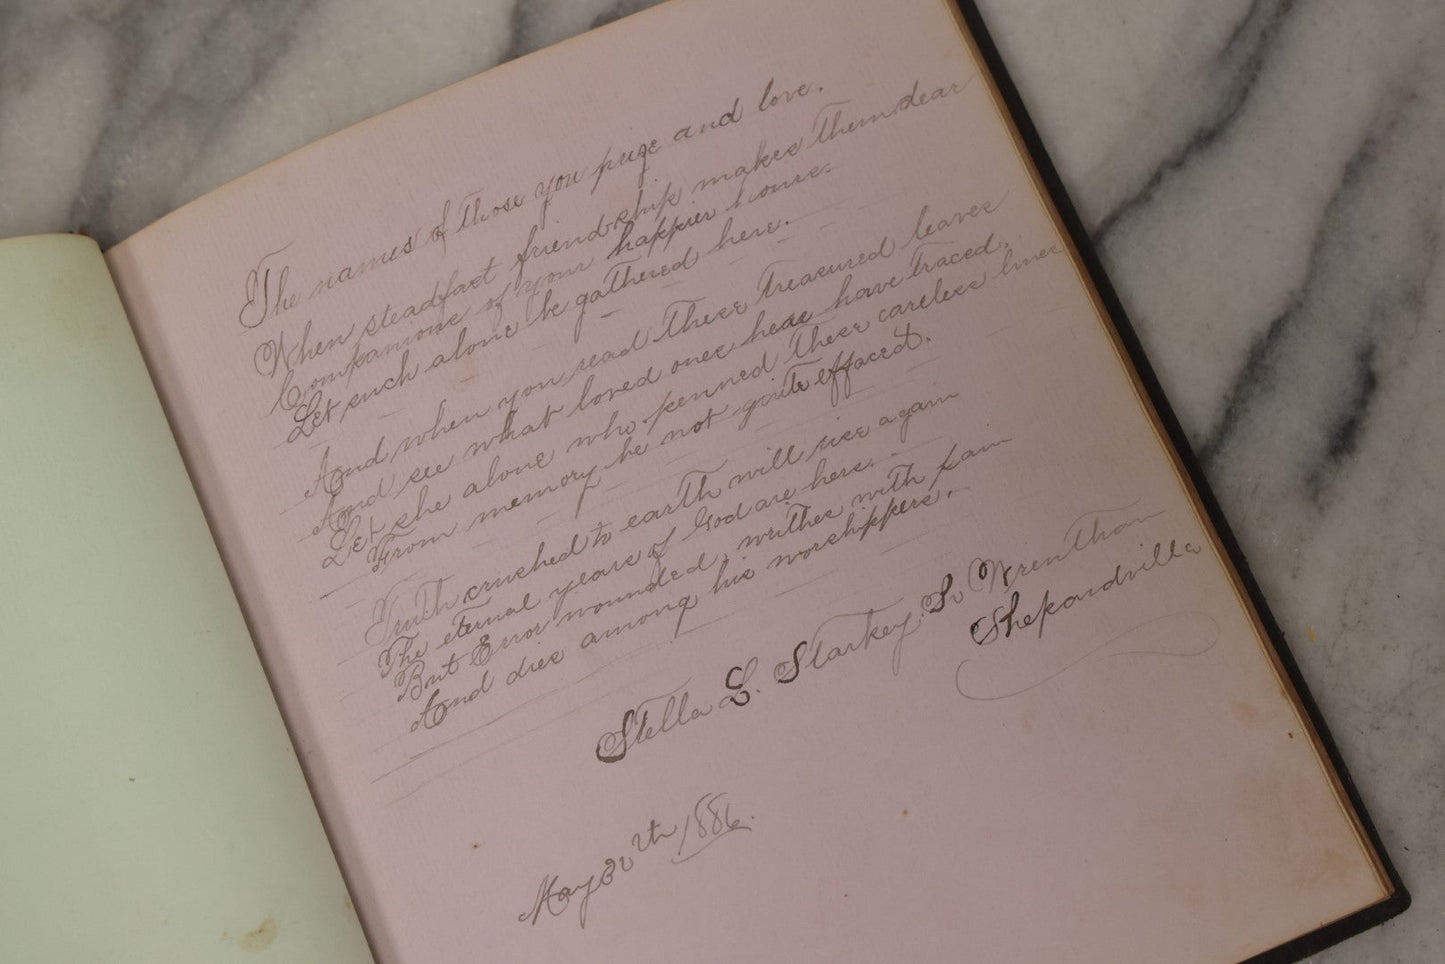 The names of those you prize and love.
When steadfast friendship makes them dear
Companions of your happier hours.
Let such alone be gathered here.
And when you read these treasured leaves
And see what loved ones here have traced.
Let she alone who penned these careless lines
From memory be not quite effaced.
Truth crushed to earth will rise again
The eternal years of God are hers.
But Error wounded, writhes with pain
And dies among his worshippers.
Stella L. Starkey. So Wrentham
Shepardville
May 30th 1886.